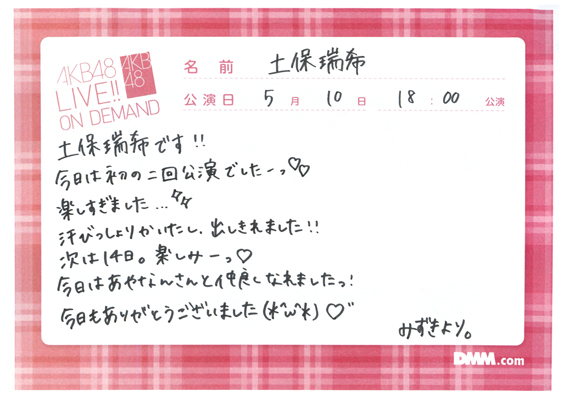 AKB48
LIVE!!
ON DEMAND
AKB
48
名前 土保瑞希
公演日 5月 10日 18:00 公演
土保瑞希です!!
今日は初の二回公演でしたーっ♡♡
楽しすぎました...
汗びっしょりかいたし、出しきれました!!
次は14日。楽しみーっ♡
今日はあやなんさんと仲良くなれましたっ!
今日もありがとうございました(*^ω^*)♡"
みずきより。
DMM.com